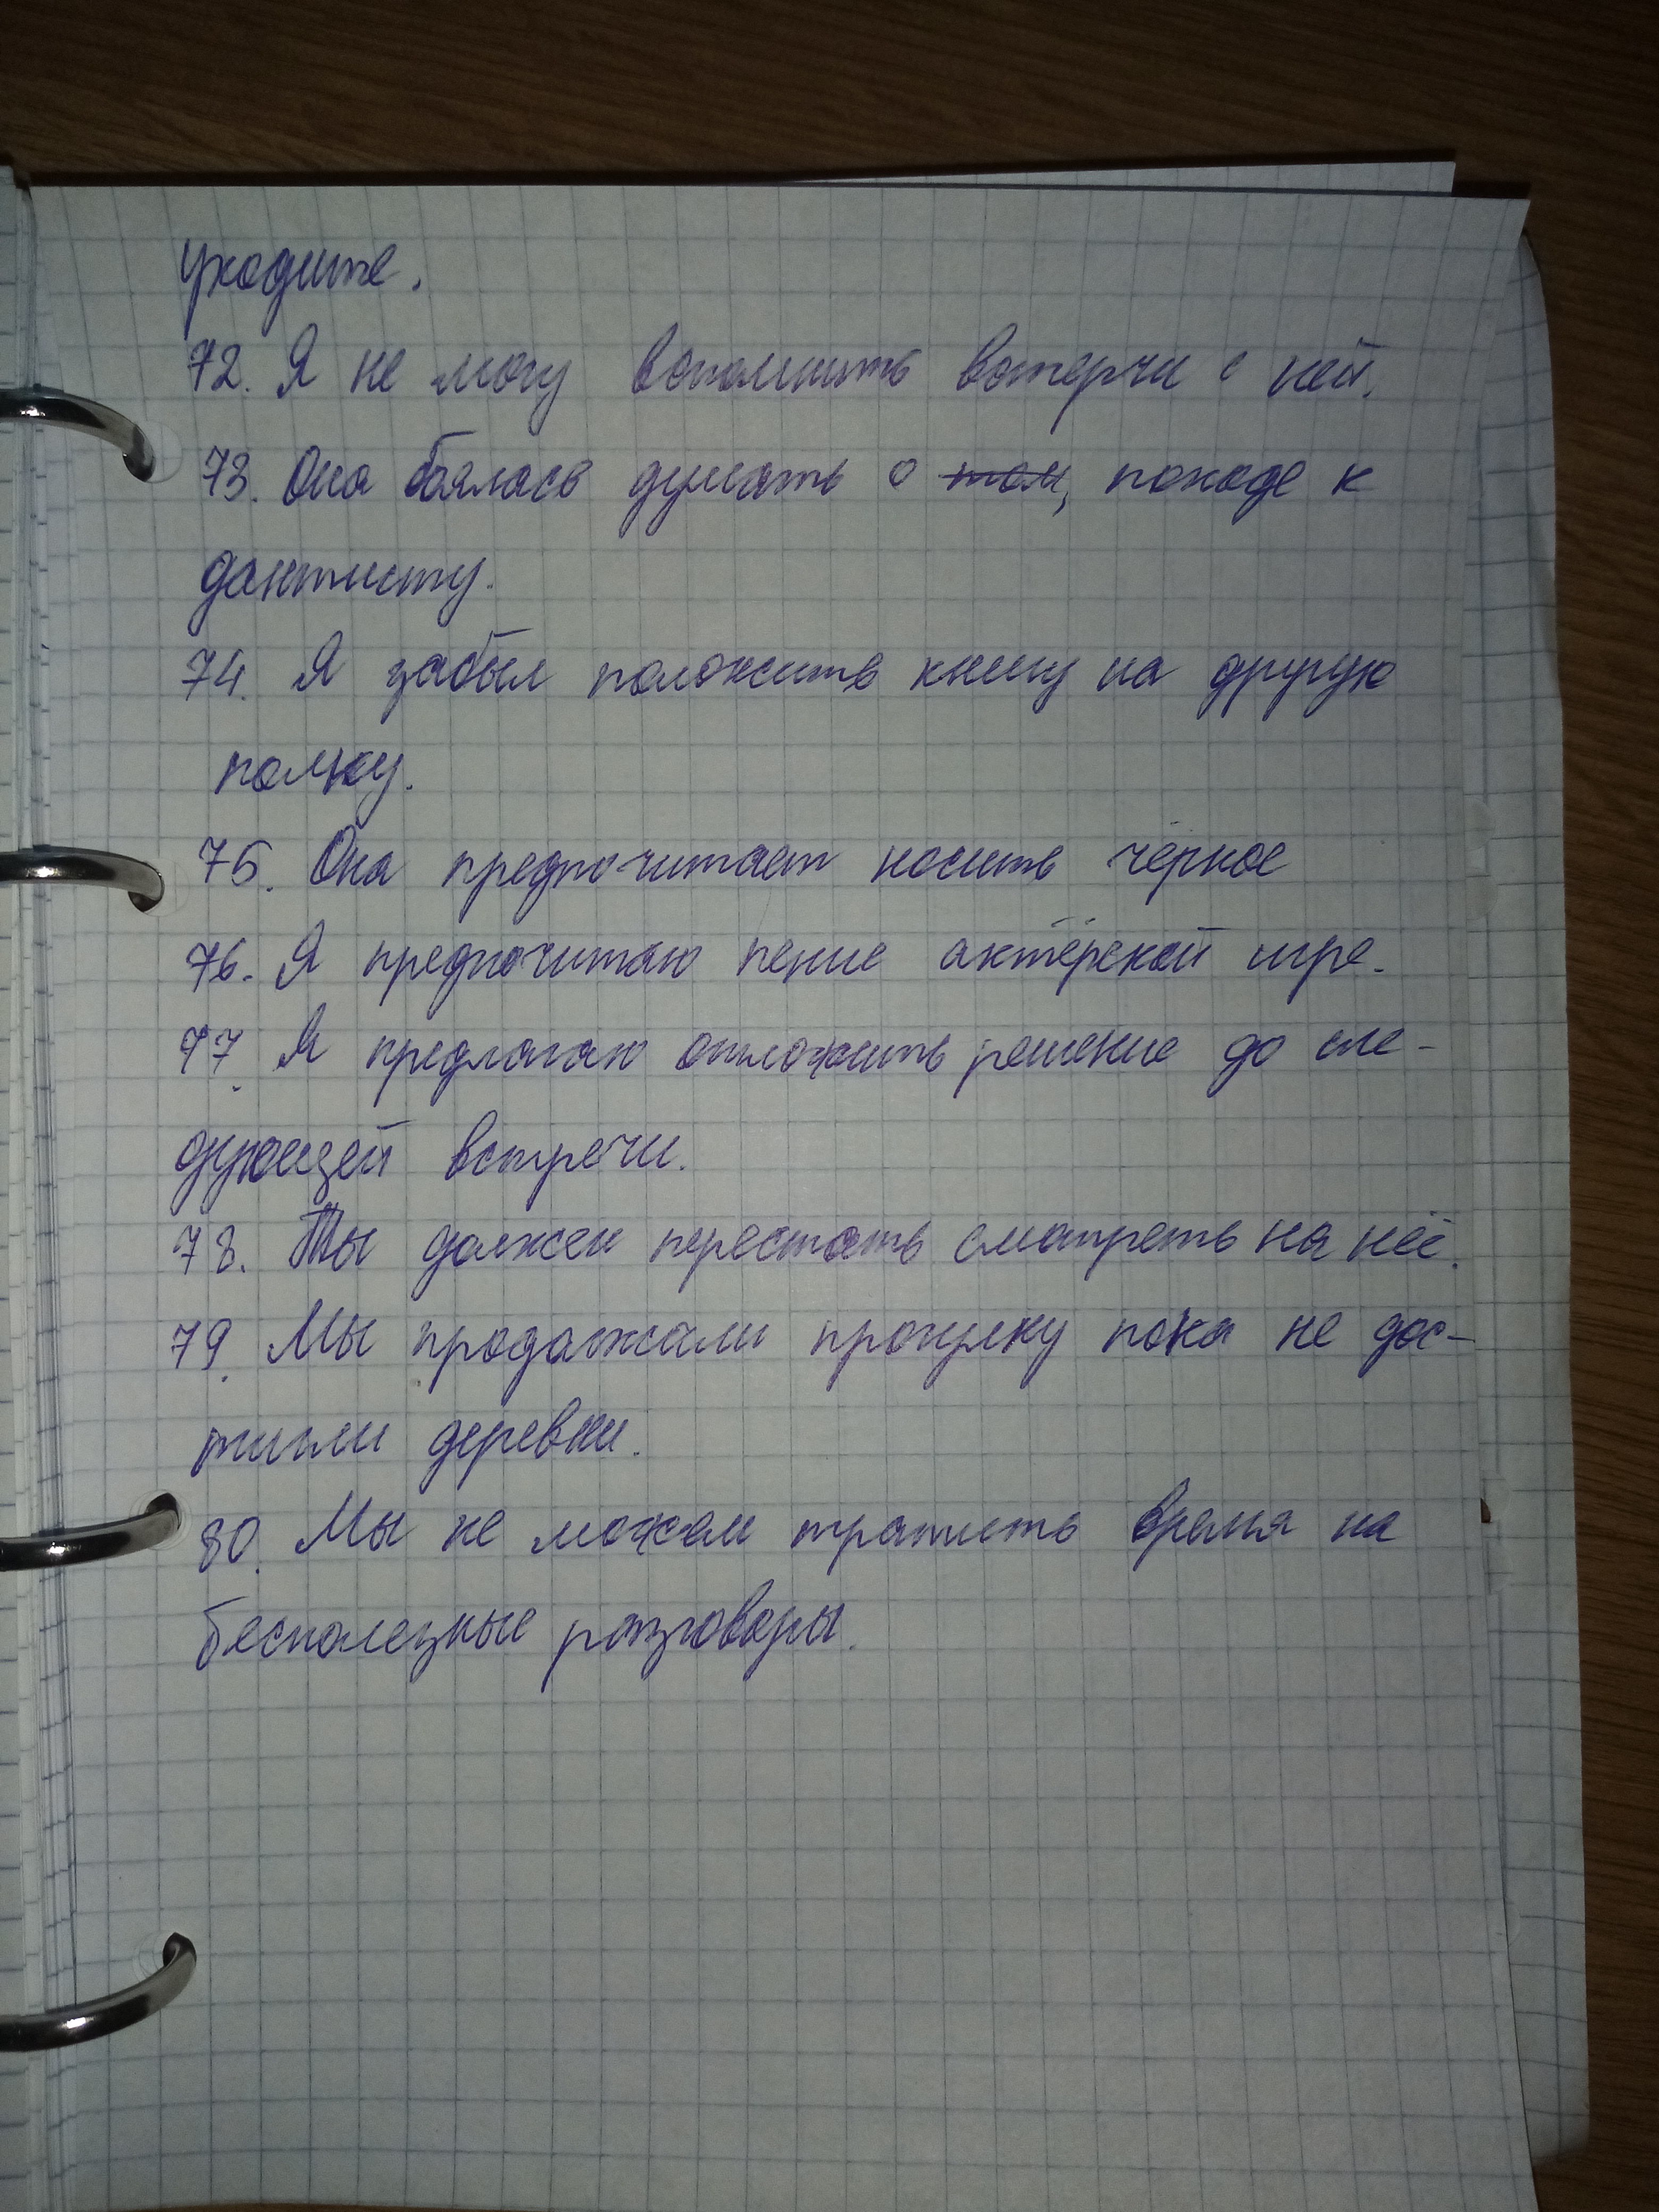 уходите.
72. Я не могу вспомнить встерчи с ней.
73. Она боялась думать о том, походе к
дантисту.
74. Я забыл положить книгу на другую
полку.
75. Она предпочитает носить чёрное
76. Я предпочитаю пение актёрской игре.
77. Я предлагаю отложить решение до сле-
дующей встречи.
78. Ты должен перестать смотреть на неё.
79. Мы продолжали прогулку пока не дос-
тигли деревни.
80. Мы не можем тратить время на
бесполезные разговоры.